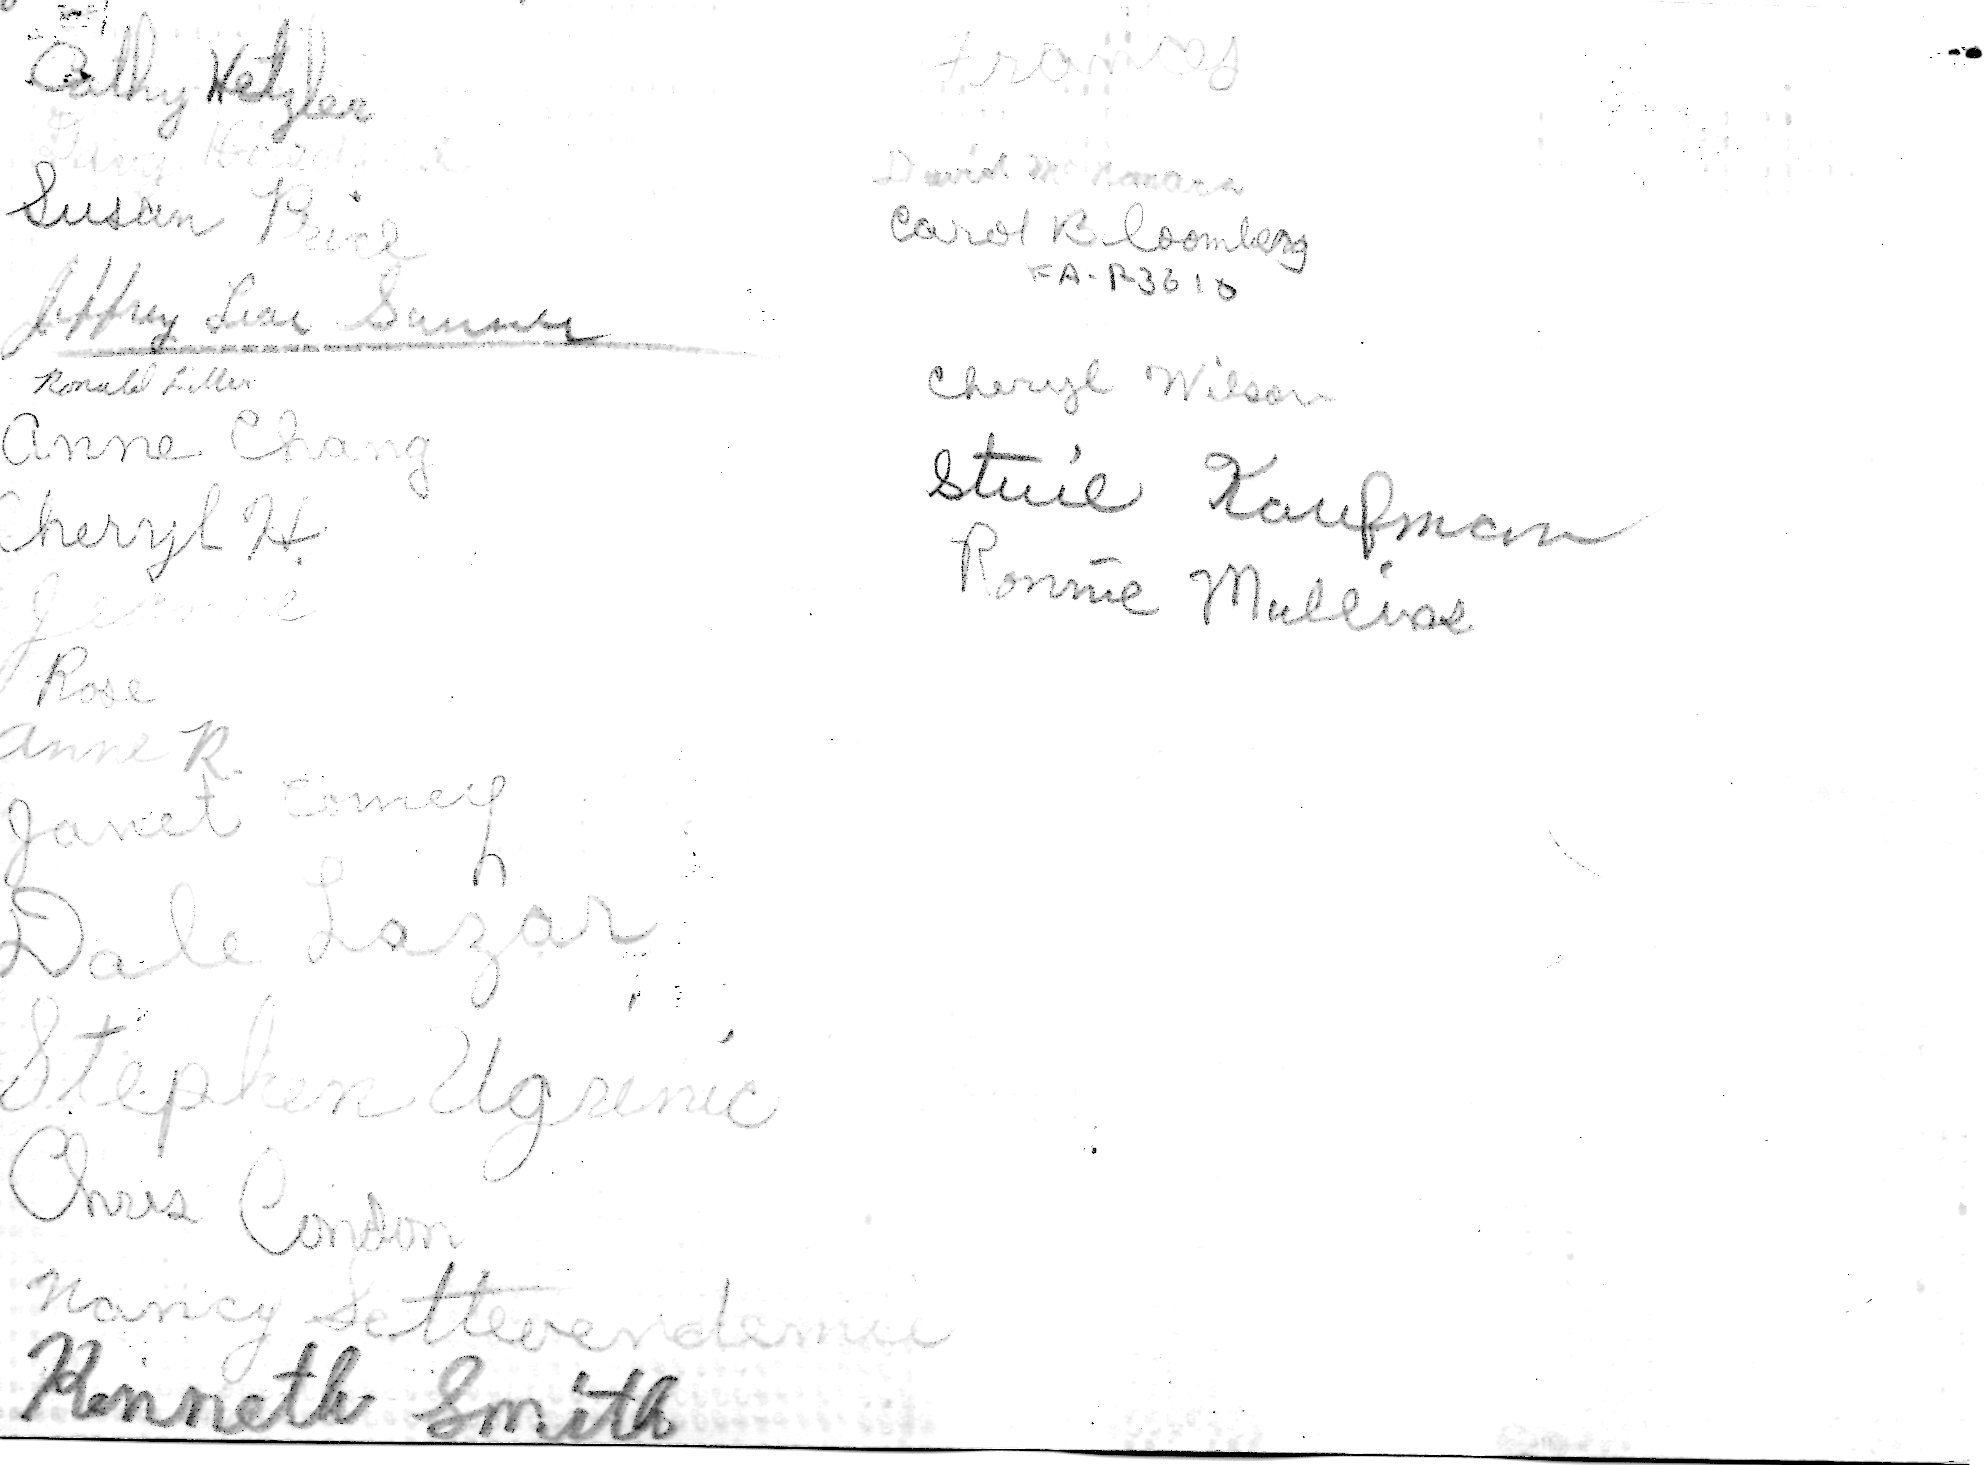 Cathy Hetzler
Susan Price
Jeffrey Sumner
Ronald
Anne Chang
Cheryl H.
Jeanne
Rose
Anne R.
Janet Comey
Dale Lazar
Stephen Ugrinic
Chris Condon
Nancy Settevendemie
Kenneth Smith
Frances
David McNamara
Carol Bloomberg
FA-R3610
Cheryl Wilson
Kaufman
Ronnie